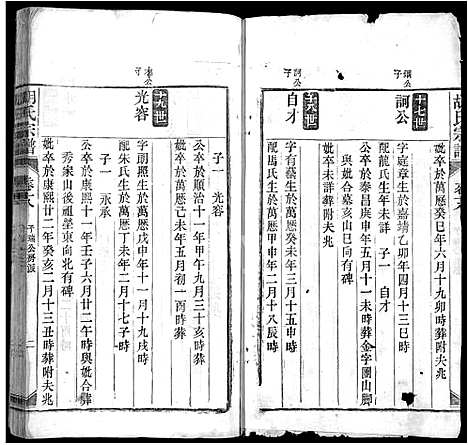 胡氏宗譜
妣卒於萬歷癸巳年六月十九卯時葬附夫兆
十七世
瓚公
子
詞公
字庭章生於嘉靖乙卯年四月十三巳時
公卒於泰昌庚申年五月十一未時葬金字團山脚
與妣合墓亥山巳向有碑
配龍氏生年未詳
子一
自才
妣卒未詳葬附夫兆
十八世
詞公
子
自才
字有發生於萬歷癸未年三月十五申時
配馬氏生於萬歷甲申年二月十八辰時
子一
光容
公卒於順治十一年甲午九月三十亥時葬
妣卒於萬歷己未年五月初一酉時葬
十九世
子
光容
字嗣照生於萬歷戊申年十一月十九戌時
配朱氏生於萬歷丁未年二月十七子時
子一
永承
公卒於康熙十一年壬子六月廿二午時與妣合葬
秀家山後祖塋東向北有碑
妣卒於康熙二十二年癸亥二月十三丑時葬附夫兆
胡氏宗譜
子瑞公房派
二